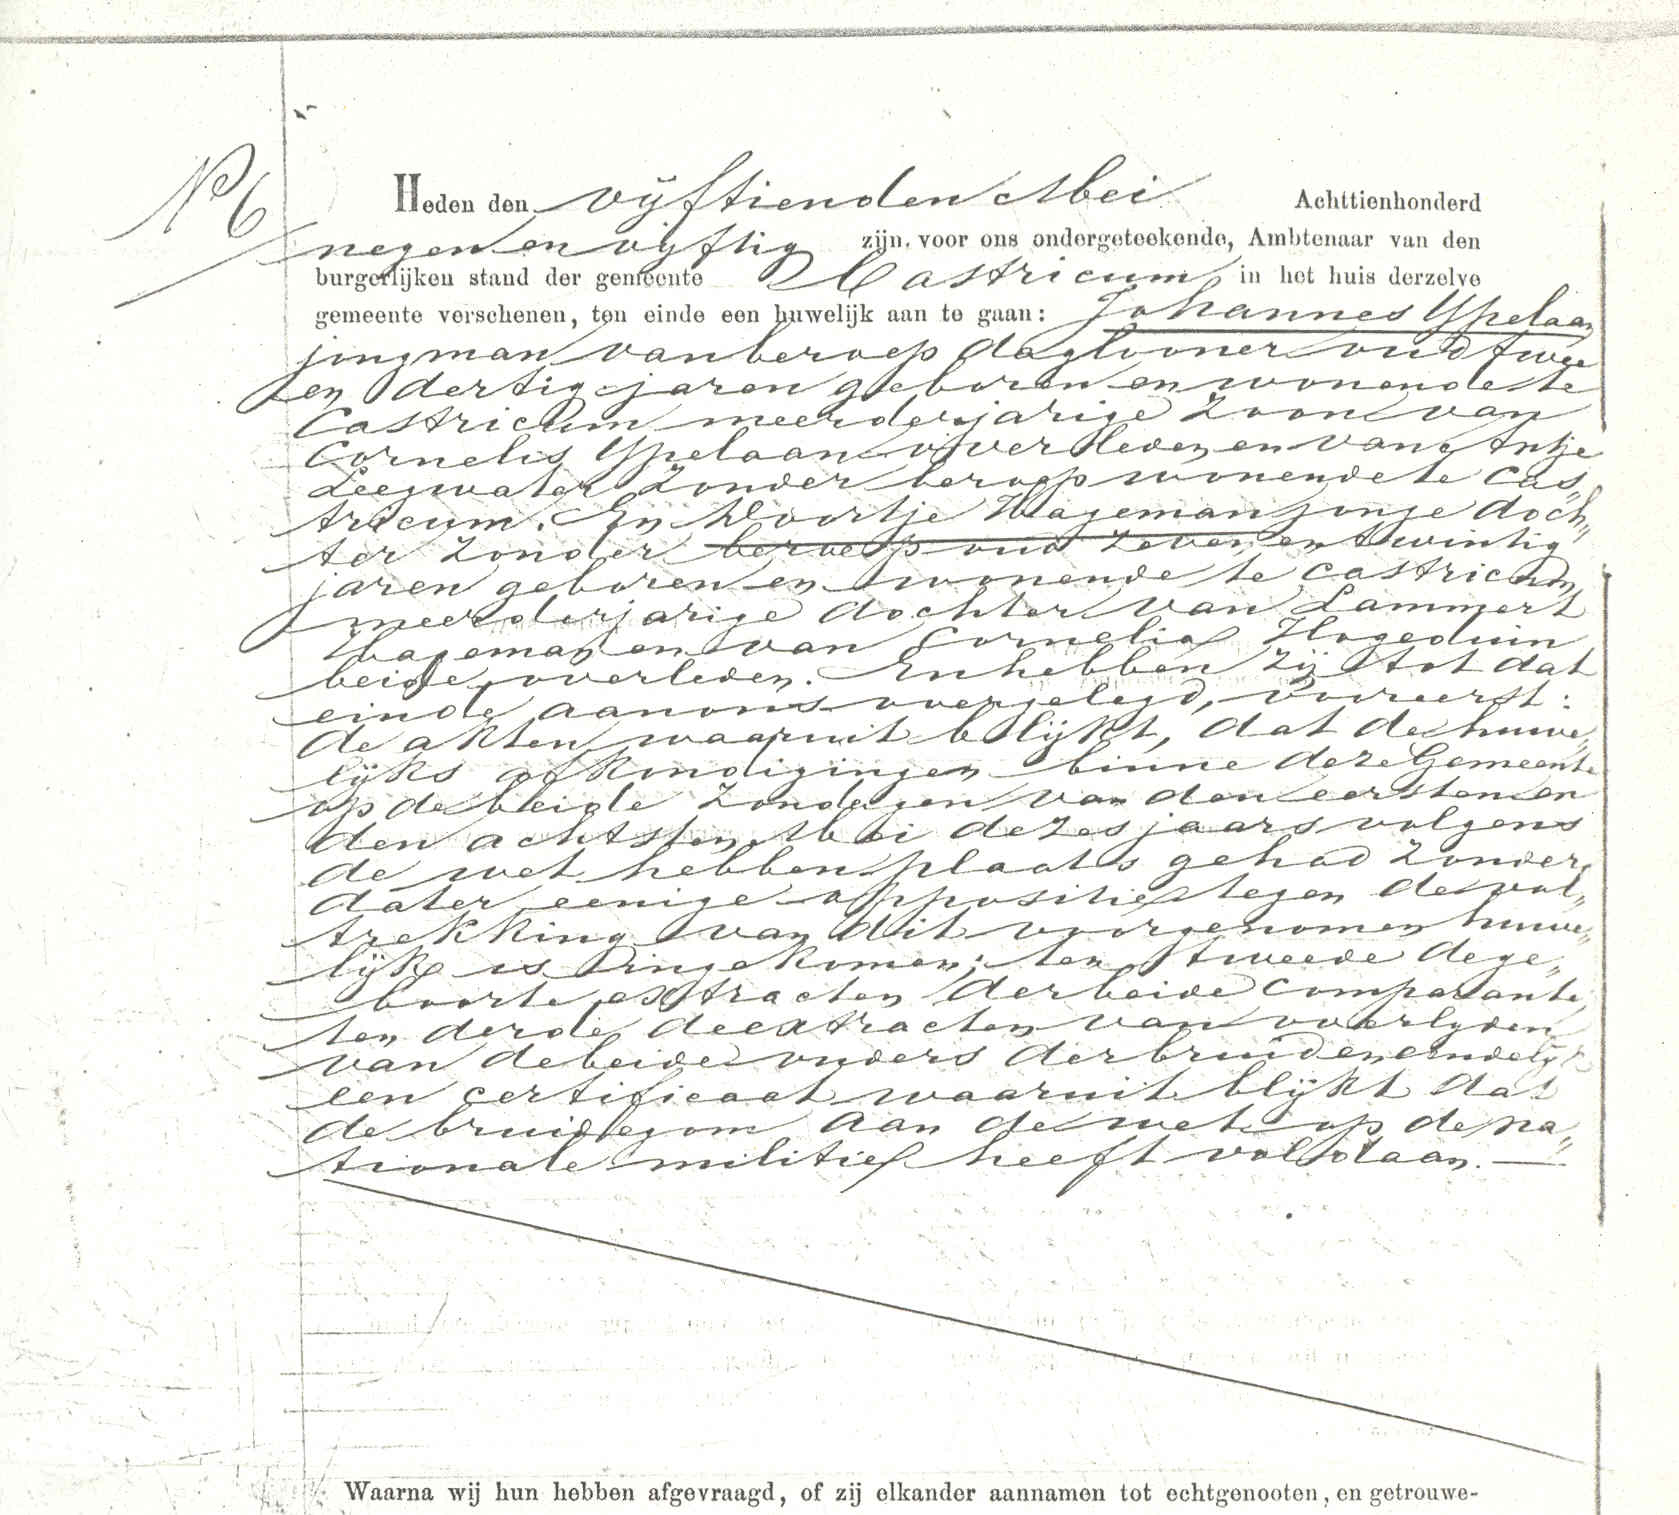 No 6
Heden den vijftienden Mei Achttienhonderd
negen en vijftig zijn, voor ons ondergeteekende, Ambtenaar van den
burgerlijken stand der gemeente Castricum, in het huis derzelve
gemeente verschenen, ten einde een huwelijk aan te gaan: Johannes Ypelaan
jongman van beroep daglooner oud twee
en dertig jaren geboren en wonende te
Castricum meerderjarige zoon van
Cornelis Ypelaan overleden en van Antje
Leegwater zonder beroep wonende te Cas„
tricum. En Doortje Wageman jonge doch„
ter zonder beroep oud zeven en twintig
jaren geboren en wonende te Castricum
meerderjarige dochter van Lammert
Wageman en van Cornelia Hogeduin
beide overleden. En hebben zij tot dat
einde aan ons overgelegd, vooreerst:
de akten waaruit blijkt, dat de huwe„
lijks afkondigingen binne deze Gemeente
op de beide zondagen van den eersten en
den achtsten Mei dezes jaars volgens
de wet hebben plaats gehad zonder
dater eenige oppositie tegen de vol„
trekking van dit voorgenomen huwe„
lijk is ingekomen; ten tweede de ge„
boorte extracten der beide Comparante,
ten derde de extracten van overlyden
van de beide ouders der bruid en eindelijk
een certificaat waaruit blijkt dat
de bruidegom aan de wet op de na„
tionale militie heeft voldaan.
Waarna wij hun hebben afgevraagd, of zij elkander aannamen tot echtgenooten, en getrouwe-